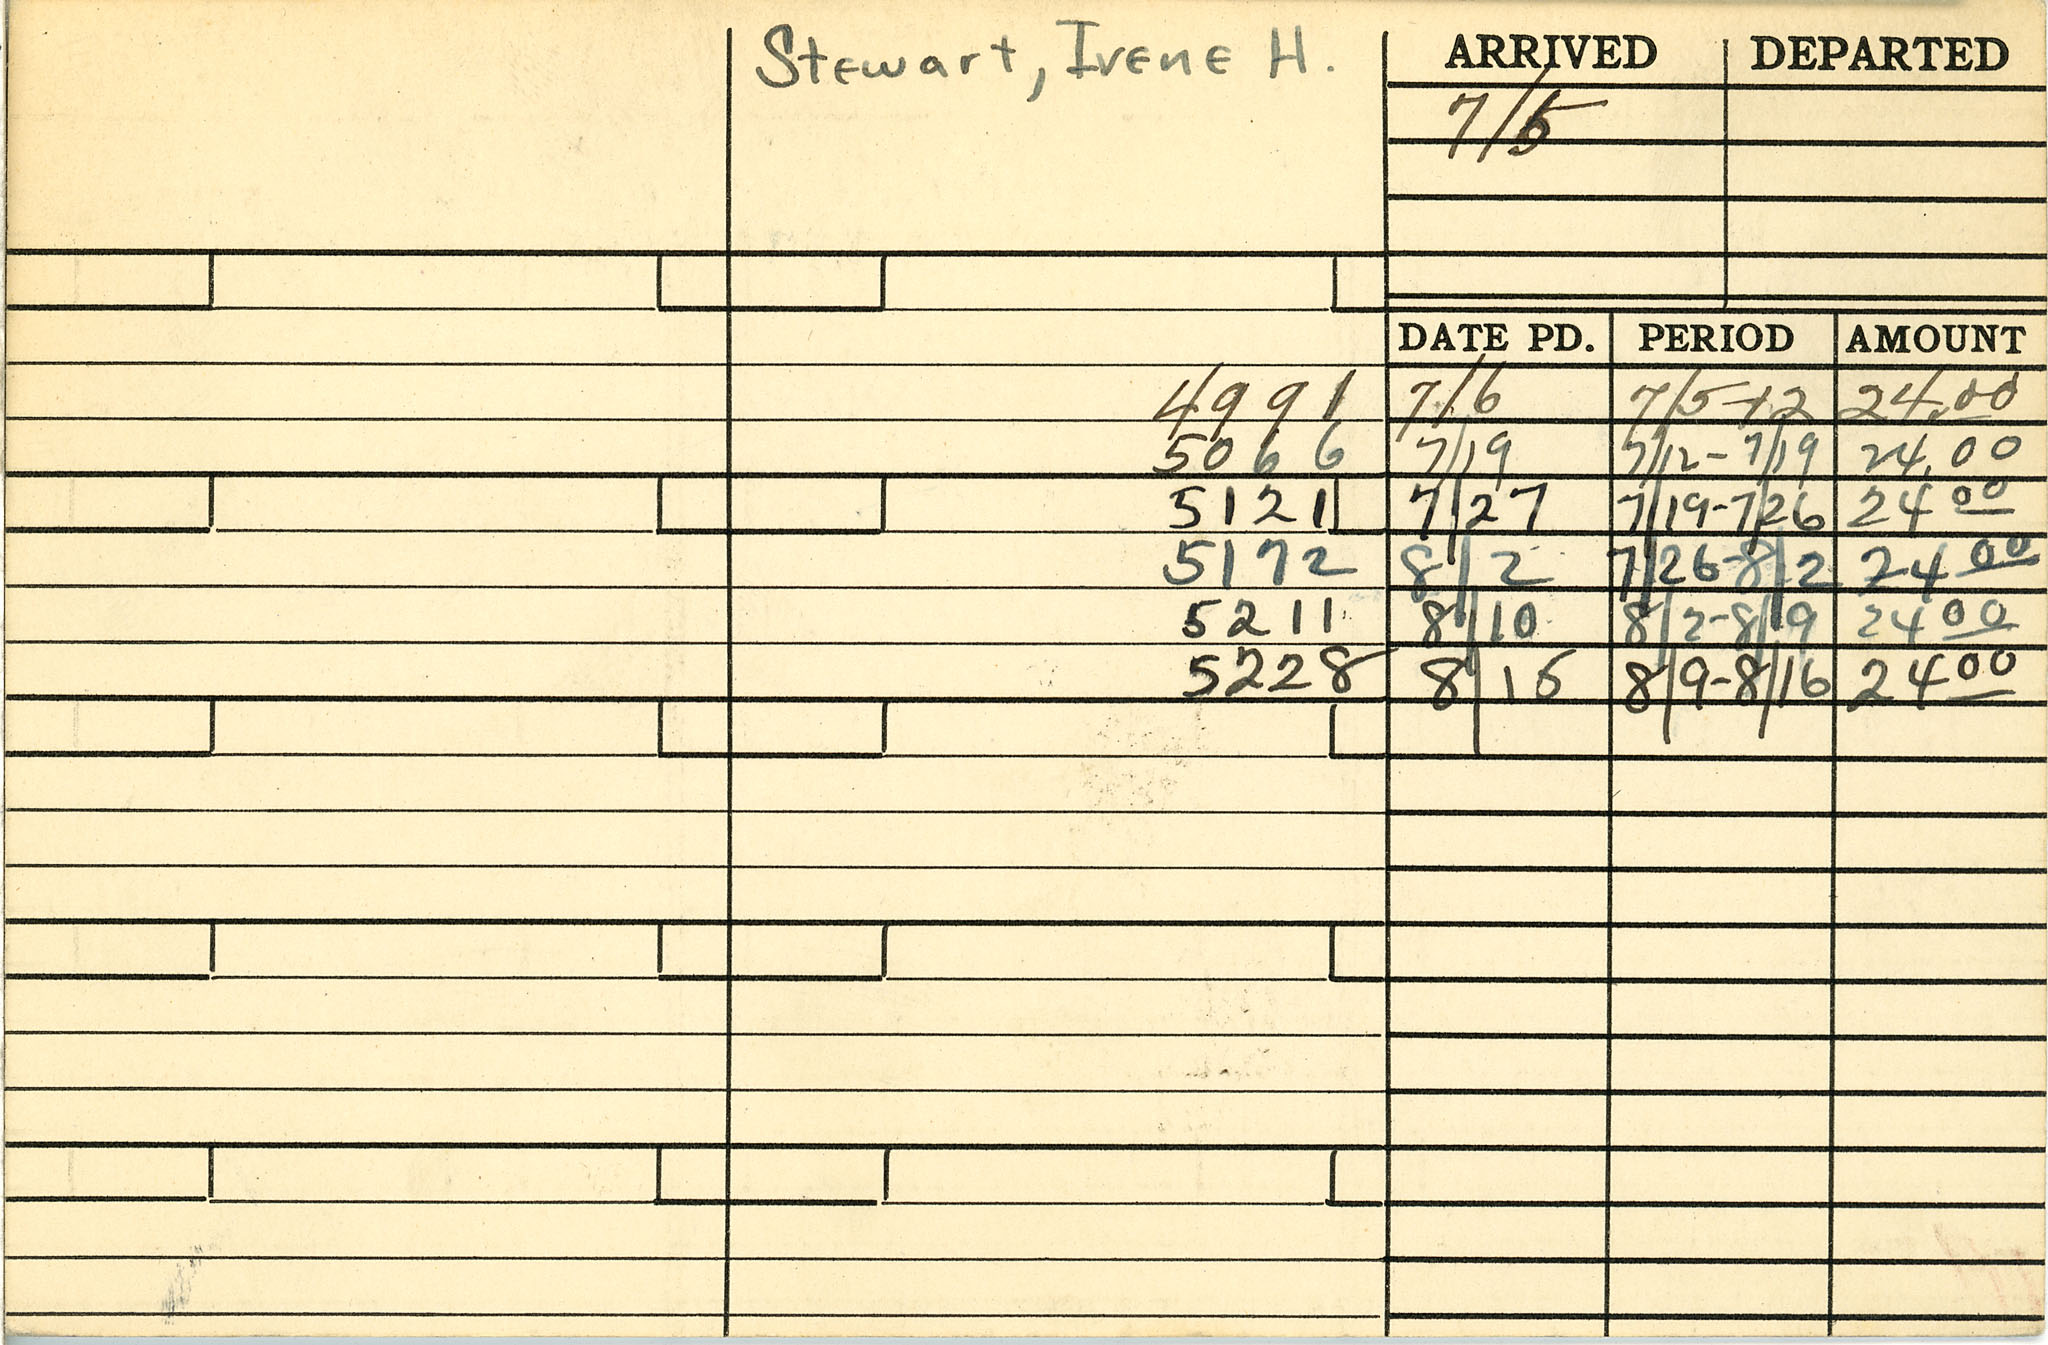 Stewart, Irene H.
ARRIVED DEPARTED
7/5
DATE PD. PERIOD AMOUNT
4991 7/6 7/5-12 24.00
5066 7/19 7/12-7/19 24.00
5121 7/27 7/19-7/26 24 00
5172 8/2 7/26-8/2 24 00
5211 8/10 8/2-8/9 24 00
5228 8/15 8/9-8/16 24 00